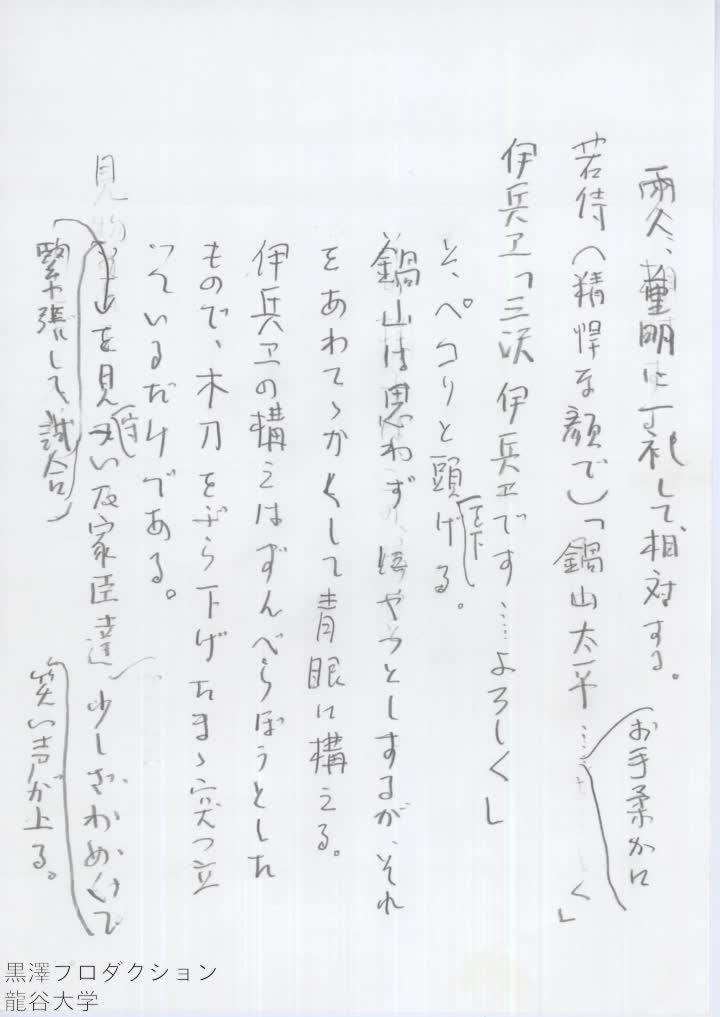 両人、重明に一礼して、相対する。
若侍(精悍な顔で)「鍋山太平……お手柔かに」
伊兵ヱ「三沢伊兵ヱです……よろしく」
と、ペコリと頭を下げる。
鍋山は思わず やうとしするが、それ
をあわてゝかくして青眼に構える。
伊兵ヱの構えはずんべらぼうとした
もので、木刀をぶら下げたまゝ突っ立
っているだけである。
緊張して、試合
を見守い 家臣達、少しざわめくて
笑い声が上る。
黒澤プロダクション
龍谷大学